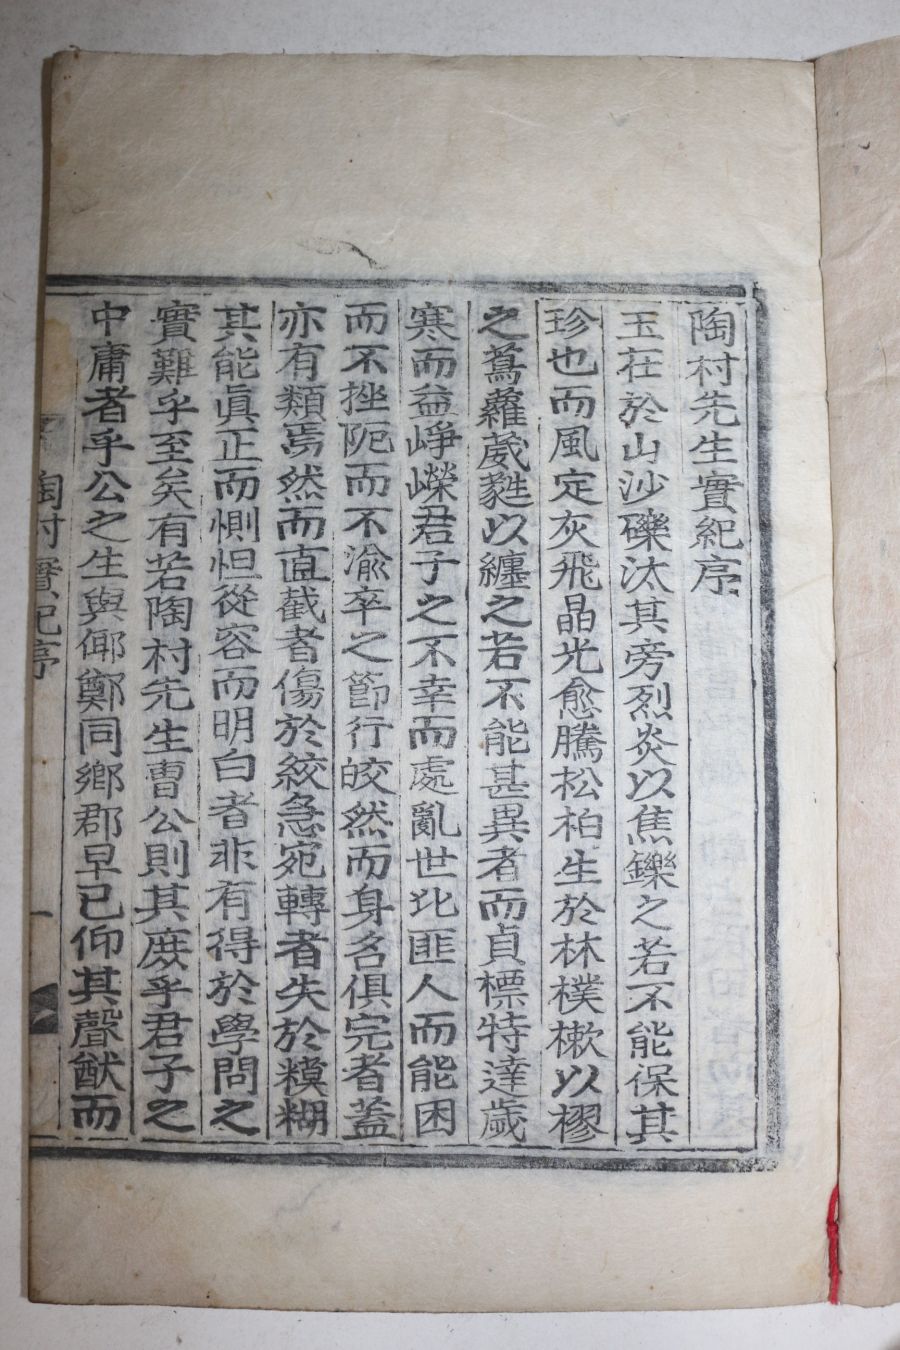 陶村先生實紀序
玉在於山沙礫汰其旁烈炎以焦鑠之若不能保其
珍也而風定灰飛晶光愈騰松柏生於林樸樕以樛
之蔦蘿葳蕤以纏之若不能甚異者而貞標特達歲
寒而益崢嶸君子之不幸而處亂世比匪人而能困
而不挫阨而不渝卒之節行皎然而身名俱完者蓋
亦有類焉然而直截者傷於絞急宛轉者失於糢糊
其能眞正而惻怛從容而明白者非有得於學問之
實難乎至矣有若陶村先生曺公則其庶乎君子之
中庸者乎公之生與倻鄭同鄉郡早已仰其聲猷而
陶村實紀序
一